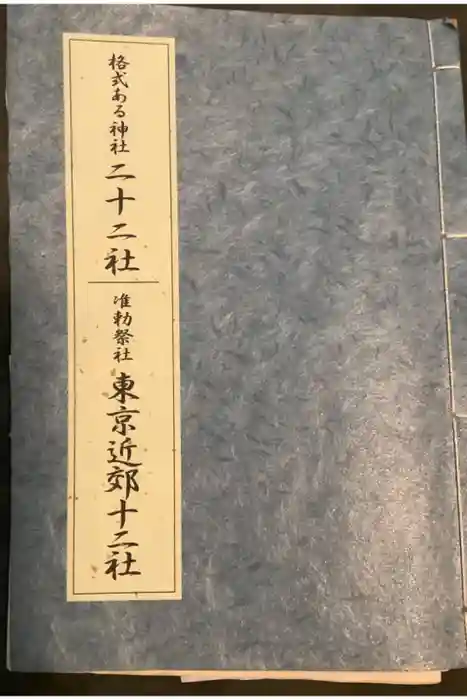 格式ある神社 二十二社
准勅祭社 東京近郊十二社